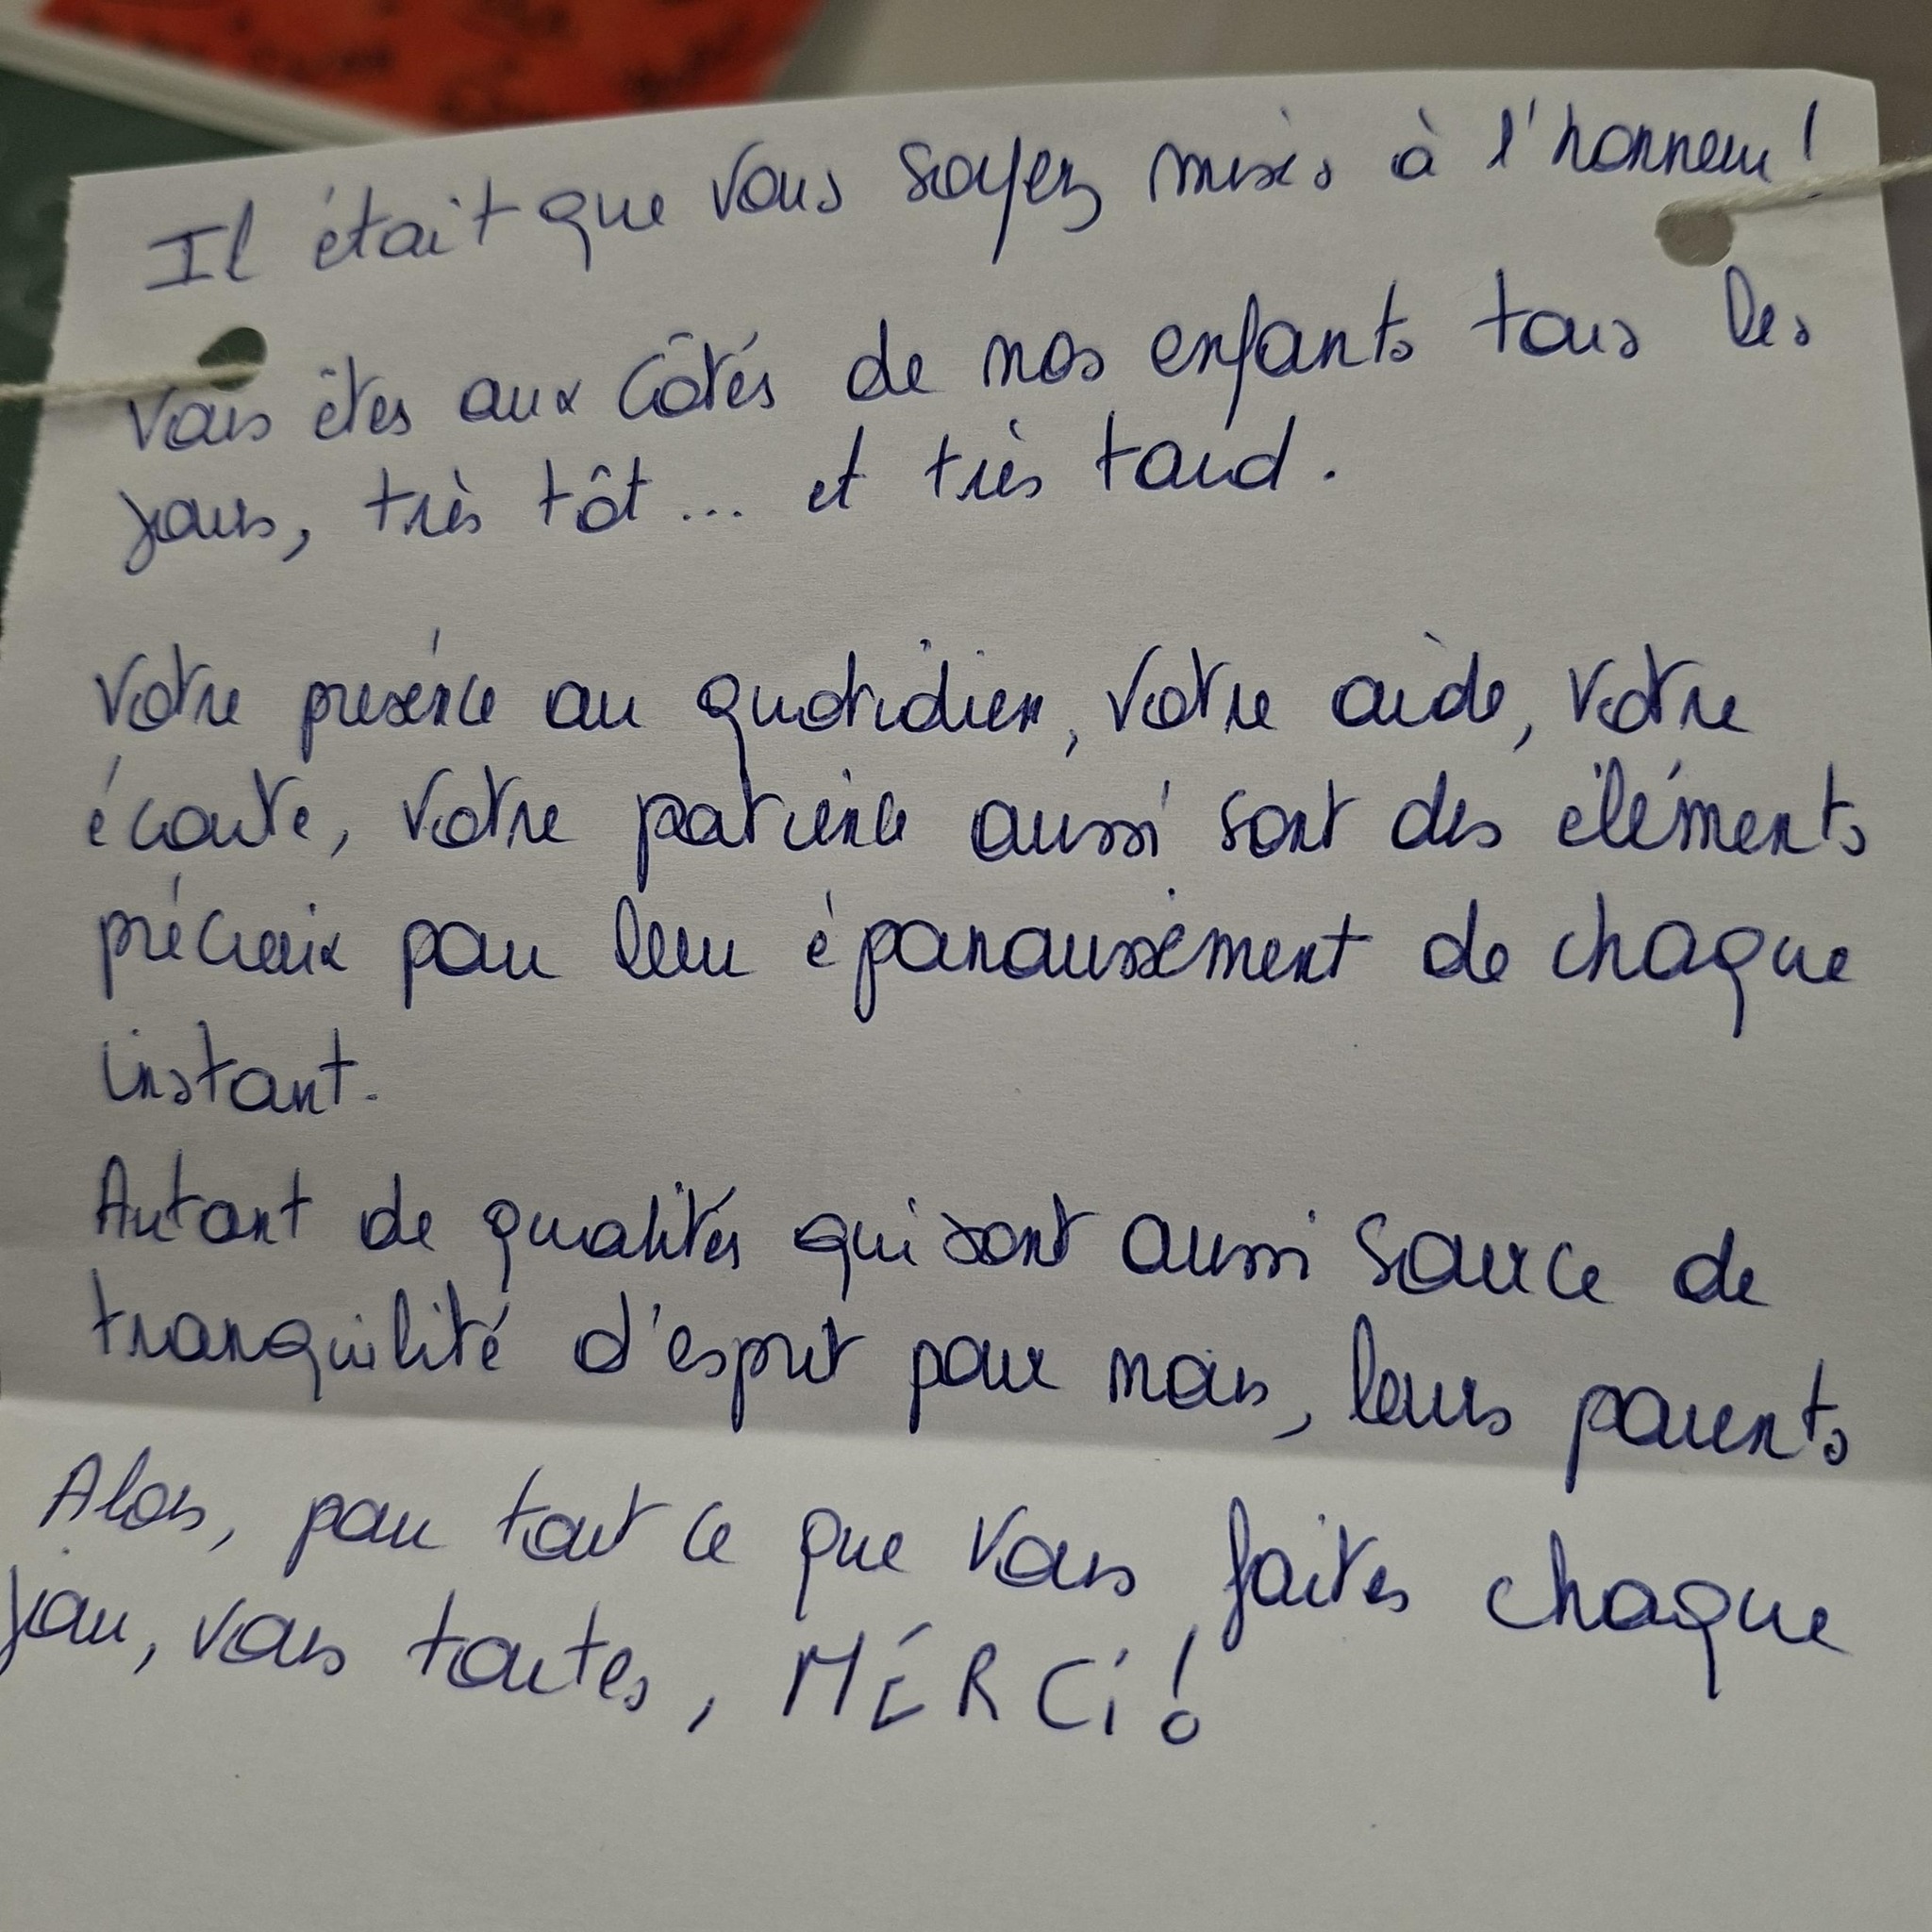 Il était que vous soyez mises à l'honneur !
Vous êtes aux côtés de nos enfants tous les
jours, très tôt... et très tard.
Votre présence au quotidien, votre aide, votre
écoute, votre patience aussi sont des éléments
précieux pour leur épanouissement de chaque
instant.
Autant de qualités qui sont aussi source de
tranquilité d'esprit pour nous, leurs parents
Alors, pour tout ce que vous faites chaque
jour, vous toutes, MERCi !